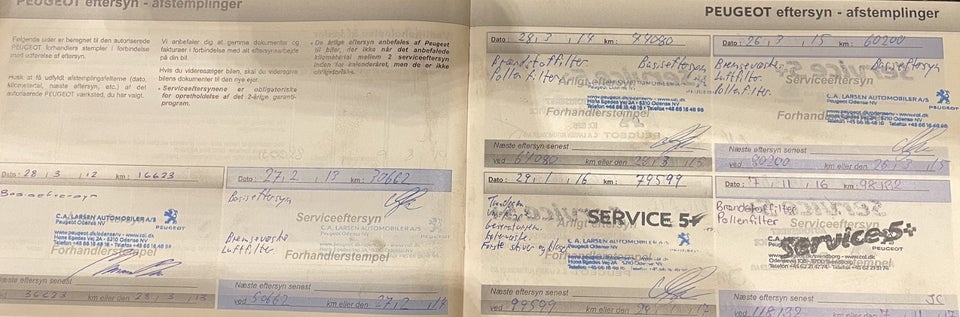 PEUGEOT eftersyn - afstemplinger
Følgende sider er beregnet til den autoriserede
PEUGEOT forhandlers stempler i forbindelse
med udførelse af eftersyn.
Husk at få udfyldt afstemplingsfelterne (dato,
kilometertal, næste eftersyn, etc.) af det
autoriserede PEUGEOT værksted, du har valgt.
Vi anbefaler dig at gemme dokumenter og
fakturaer i forbindelse med eftersyn/arbejde
på din bil.
Hvis du videresælger bilen, skal du vedlægge
bilens dokumenter til den nye ejer.
- Serviceeftersynene er obligatoriske
for opretholdelse af det 2-årige garanti-
program.
- De årlige eftersyn anbefales af Peugeot
til biler, der ikke når det anbefalede
kilometertal mellem 2 serviceeftersyn
inden for kalenderåret, men de er ikke
obligatoriske.
Dato: 28 / 3 / 12 km: 16623
Basiseftersyn
C.A. LARSEN AUTOMOBILER A/S
Peugeot Odense NV
www.peugeot-larsen.dk
Hans Egedes Vej 2A - 5210 Odense NV
PEUGEOT
Næste eftersyn senest
ved 36623 km eller den 28 / 3 / 13
Dato: 27 / 2 / 13 km: 30662
Basiseftersyn
Serviceeftersyn
Bremsevæske
Luftfilter
Forhandlerstempel
Næste eftersyn senest
ved 50662 km eller den 27 / 2 / 14
PEUGEOT eftersyn - afstemplinger
Dato: 28 / 3 / 14 km: 44080
Brændstoffilter Basiseftersyn
Pollenfilter
Årligt eftersyn
C.A. LARSEN AUTOMOBILER A/S
Peugeot Odense NV
Hans Egedes Vej 2A - 5210 Odense NV
Telefon +45 66 16 48 16 - Telefax +45 66 16 48 96
PEUGEOT
Forhandlerstempel
Næste eftersyn senest
ved 64080 km eller den 28 / 3 / 15
Dato: 26 / 3 / 15 km: 60200
Bremsevæske Basiseftersyn
Luftfilter
Pollenfilter
Serviceeftersyn
C.A. LARSEN AUTOMOBILER A/S
Peugeot Odense NV
PEUGEOT
Forhandlerstempel
Næste eftersyn senest
ved 80200 km eller den 26 / 3 / 15
Dato: 29 / 1 / 16 km: 79599
Årligt eftersyn
SERVICE 5+
C.A. LARSEN AUTOMOBILER A/S
Peugeot Odense NV
Hans Egedes Vej 2A - 5210 Odense NV
PEUGEOT
Forhandlerstempel
Næste eftersyn senest
ved 99599 km eller den
Dato: 7 / 11 / 16 km: 98132
Brændstoffilter
Pollenfilter
Serviceeftersyn
Service 5+
PEUGEOT
Forhandlerstempel
Næste eftersyn senest JC
ved 118132 km eller den 7 / 11 / 17